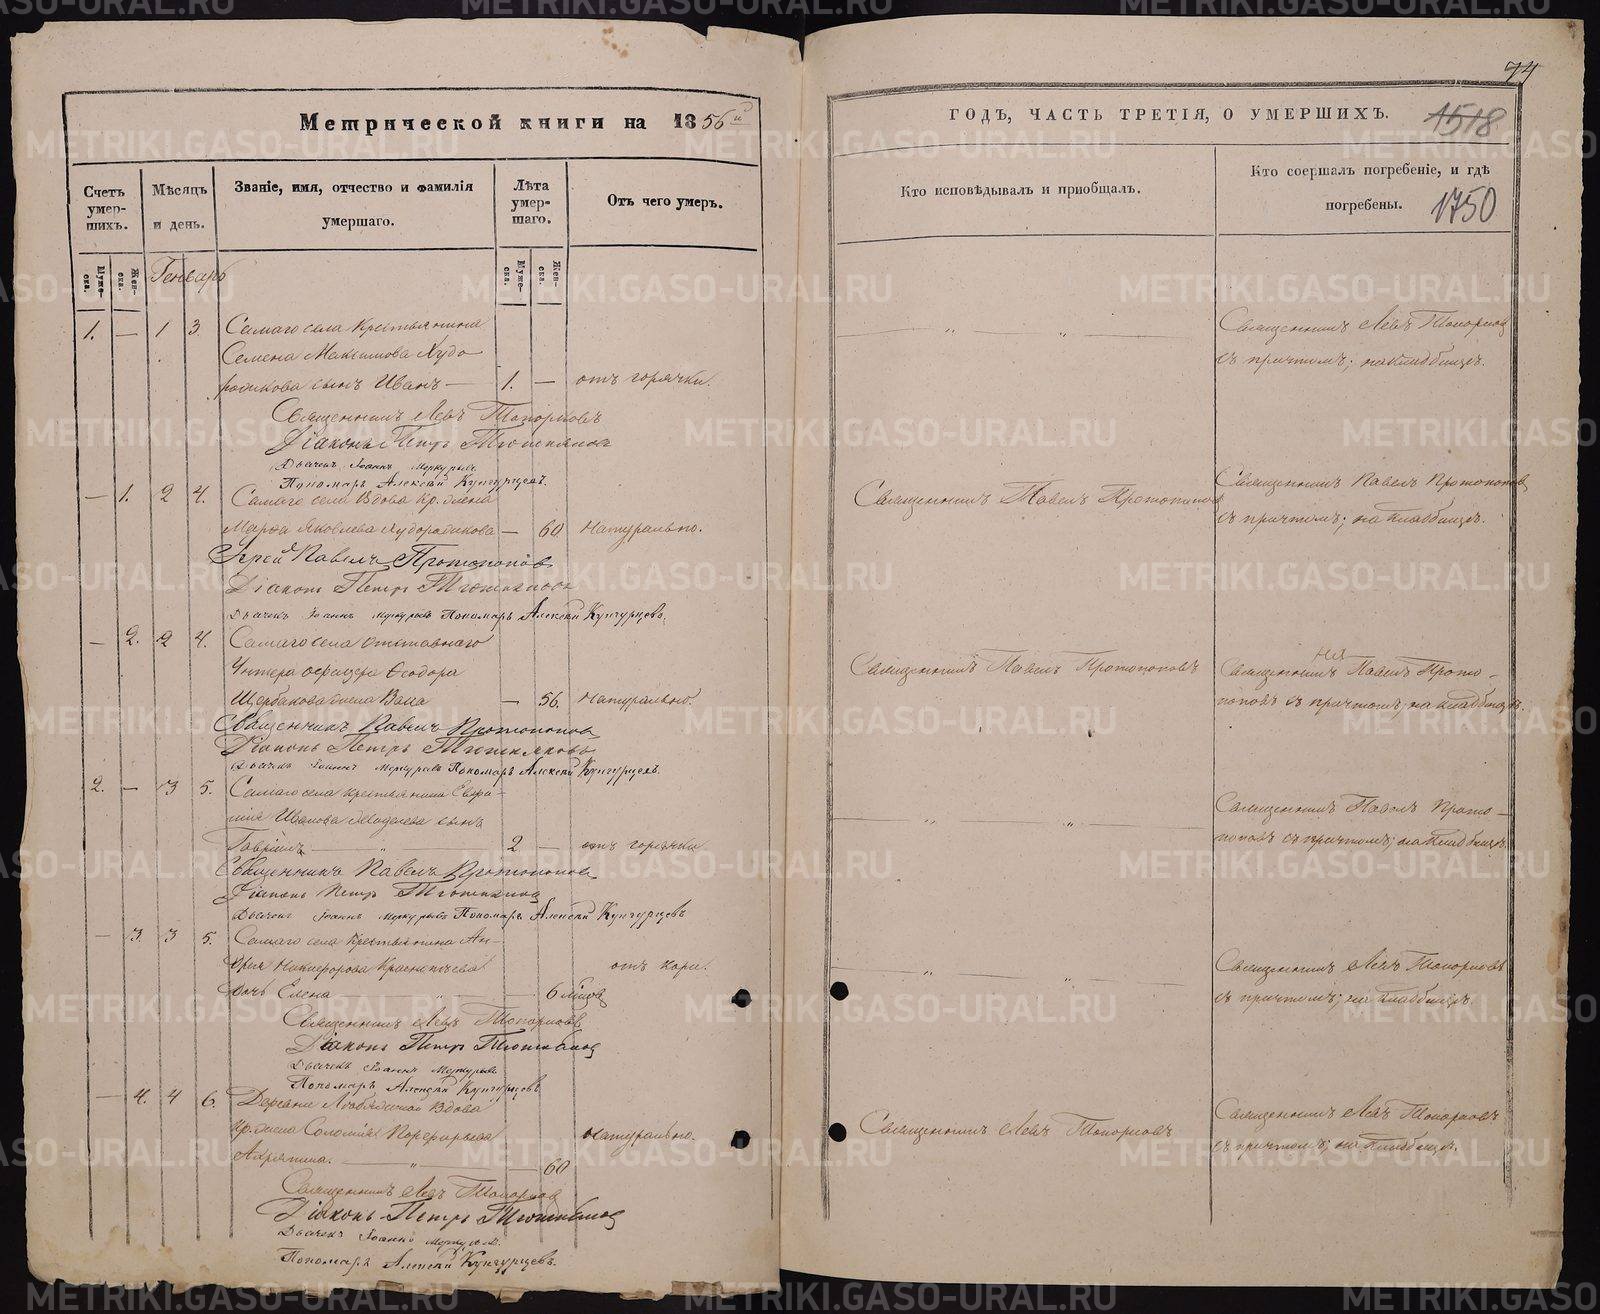 Метрической книги на 1856й
Счетъ умер-шихъ.
Мѣсяцъ и день.
Званіе, имя, отчество и фамилія умершаго.
Лѣта умер-шаго.
Отъ чего умеръ.
Муже-ска.
Жен-ска.
Муже-ска.
Жен-ска.
Генварь
1. — 1 3. Самаго села Крестьянина
Семена Максимова Худо
рожкова сынъ Иванъ — 1. — отъ горячки.
Священникъ Левъ Топорковъ
Діаконъ Петръ
Дьячекъ Іоаннъ Меркурьевъ
Пономарь Алексѣй Кунгурцевъ.
— 1. 2 4. Самаго села Вдова Кр. жена
Марѳа Яковлева — 60 Натурально.
Іерей Павелъ Протопоповъ
Діаконъ Петръ
Дьячекъ Іоаннъ Меркурьевъ Пономарь Алексѣй Кунгурцевъ.
— 2. 2 4. Самаго села отставнаго
Унтера офицера Ѳеодора
Щербакова жена — 56. Натурально.
Священникъ Павелъ Протопоповъ
Діаконъ Петръ
Дьячекъ Іоаннъ Меркурьевъ Пономарь Алексѣй Кунгурцевъ.
2. — 3 5. Самаго села крестьянина
Ивакова сынъ
Гавріилъ — „ 2 — отъ горячки
Священникъ Павелъ Протопоповъ
Діаконъ Петръ
Дьячекъ Іоаннъ Меркурьевъ Пономарь Алексѣй Кунгурцевъ
— 3. 3 5. Самаго села Крестьянина Ан-
дрея Никифорова отъ кори.
дочь Елена — „ — 6 мѣсяц
Священникъ Левъ Топорковъ
Діаконъ Петръ
Дьячекъ Іоаннъ Меркурьевъ
Пономарь Алексѣй Кунгурцевъ
— 4. 4 6. Деревни Вдова
Кр. жена Соломія Порфирьева Натурально.
— „ — 60
Священникъ Левъ Топорковъ
Діаконъ Петръ
Дьячекъ Іоаннъ Меркурьевъ.
Пономарь Алексѣй Кунгурцевъ.
74
ГОДЪ, ЧАСТЬ ТРЕТІЯ, О УМЕРШИХЪ.
1518
Кто исповѣдывалъ и пріобщалъ.
Кто соершалъ погребеніе, и гдѣ погребены.
1750
Священникъ Левъ Топорковъ
съ причтомъ; на кладбищѣ.
Священникъ Павелъ Протопоповъ
Священникъ Павелъ Протопоповъ
съ причтомъ; на кладбищѣ.
Священникъ Павелъ Протопоповъ
Священникъ Павелъ Прото-
поповъ съ причтомъ, на кладбищѣ.
Священникъ Павелъ Прото-
поповъ съ причтомъ; на кладбищѣ.
Священникъ Левъ Топорковъ
съ причтомъ; на кладбищѣ.
Священникъ Левъ Топорковъ
Священникъ Левъ Топорковъ
съ причтомъ; на кладбищѣ.
METRIKI.GASO-URAL.RU